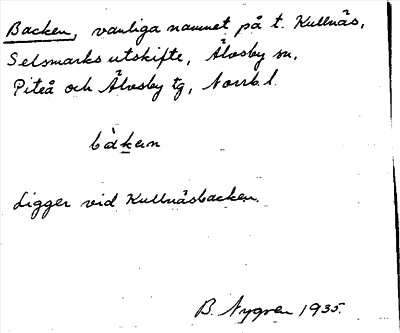 Backen, vanliga namnet på t. Kullnäs,
Selsmarks utskifte, Älvsby sn,
Piteå och Älvsby tg, Norrb. l.
bàkan
Ligger vid Kullnäsbacken.
B. Nygren 1935.